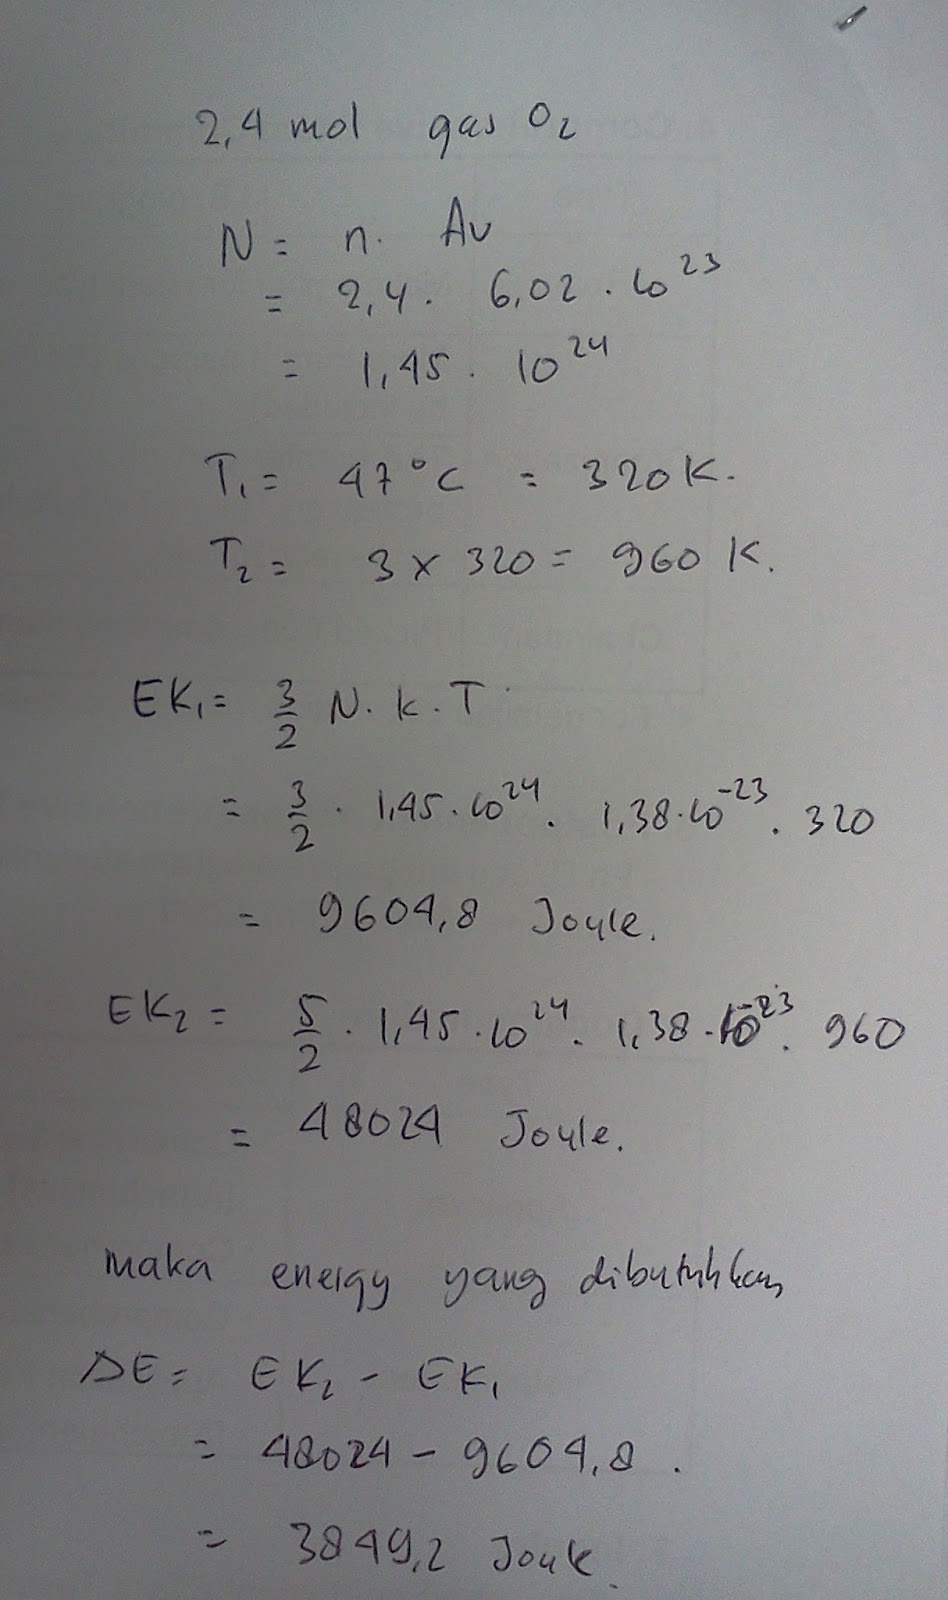 2,4 mol gas O₂
N = n. Av
= 2,4 . 6,02 . 10²³
= 1,45 . 10²⁴
T₁ = 47°C = 320 K.
T₂ = 3 x 320 = 960 K.
EK₁ = 3/2 N. k. T
= 3/2 . 1,45.10²⁴ . 1,38.10⁻²³ . 320
= 9604,8 Joule.
EK₂ = 5/2 . 1,45 . 10²⁴ . 1,38 . 10⁻²³ . 960
= 48024 Joule.
maka energy yang dibutuhkan
ΔE = EK₂ - EK₁
= 48024 - 9604,8 .
= 3849,2 Joule.